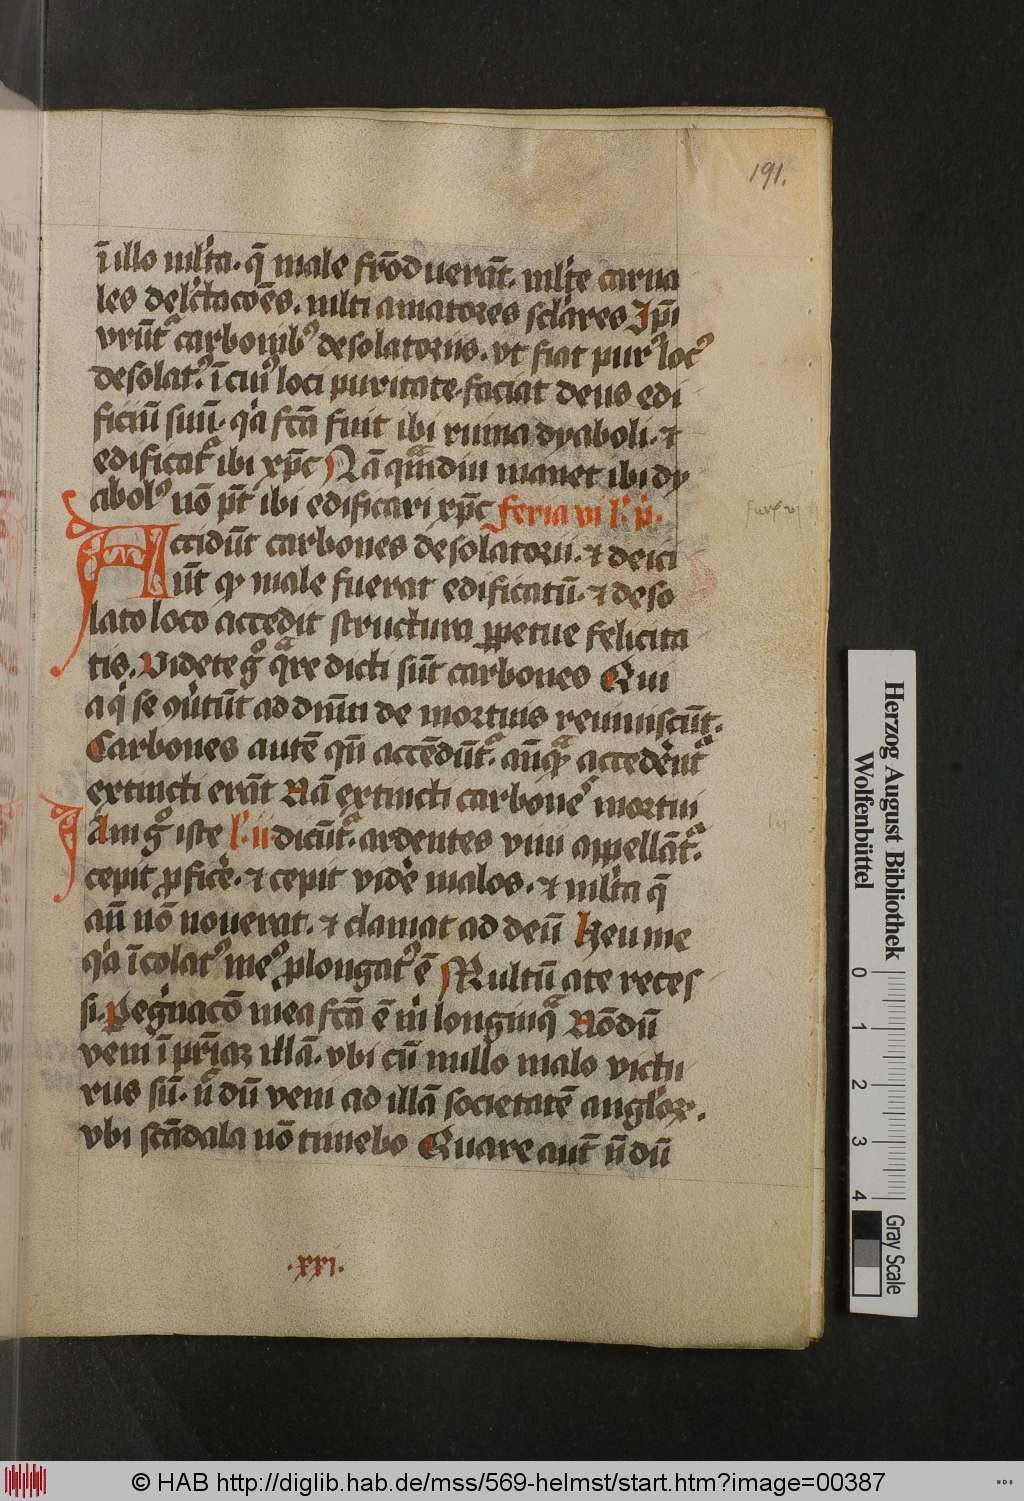 191.
ī illo ml'ta. q̄ male frōduerāt. ml'te carna
les del'ctac̄oēs. mlti amatores sc̄lares Ip̄i
vrūt᷑ carbonib᷒ desolatoriis. vt fiat pur᷒ loc᷒
desolat᷒. ī cui᷒ loci puritate. faciat deus edi
ficiū suū. q̇a fc̄a fuit ibi ruina dyaboli. ⁊
edificat᷑ ibi xp̄c Nā qᵃmdiu manet ibi dy
abol᷒ nō pt̄ ibi edificari xp̄c feria vi l'. p̓.
Accidūt carbones desolatorii. ⁊ deici
ūt qͦ male fuerat edificatū. ⁊ deso
lato loco accedit structura ꝑpetue felicita
tis. Videte gͦ qᵃre dicti sūt carbones Qui
a q̇ se ꝯu̓tūt ad dn̄m de mortuis reuiuiscūt.
Carbones autē qn̄ accēdūt᷑. an̄qᵃ̄ accederēt᷑
extincti erāt Nā extincti carbones mortui
Am gͦ iste l'. ii. dicūt᷑. ardentes viui appellāt᷑.
cepit ꝓficē. ⁊ cepit vidē malos. ⁊ ml'ta q̄
an̄ nō nouerat. ⁊ clamat ad deū Heu me
q̇a īcolat᷒ me᷒ ꝓlongat᷒ ē Multū a te reces
si. Peg̓nac̄o mea fc̄a ē ī longinqᵃ Nōdū
veni ī pr̄iaꝫ illā. vbi cū nullo malo victu
rus sū. n̄ dū veni ad illā societatē angl'oꝝ.
vbi scādala nō timebo Quare aut̄ n̄ dū
.xxi.
Herzog August Bibliothek
Wolfenbüttel
0 1 2 3 4
Gray Scale
© HAB http://diglib.hab.de/mss/569-helmst/start.htm?image=00387